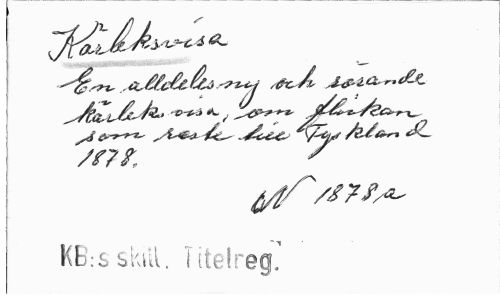 Kärleksvisa
En alldeles ny och rörande
kärleksvisa, om flickan
som reste till Tyskland
1878.
N 1878,a
KB:s skill. Titelreg.